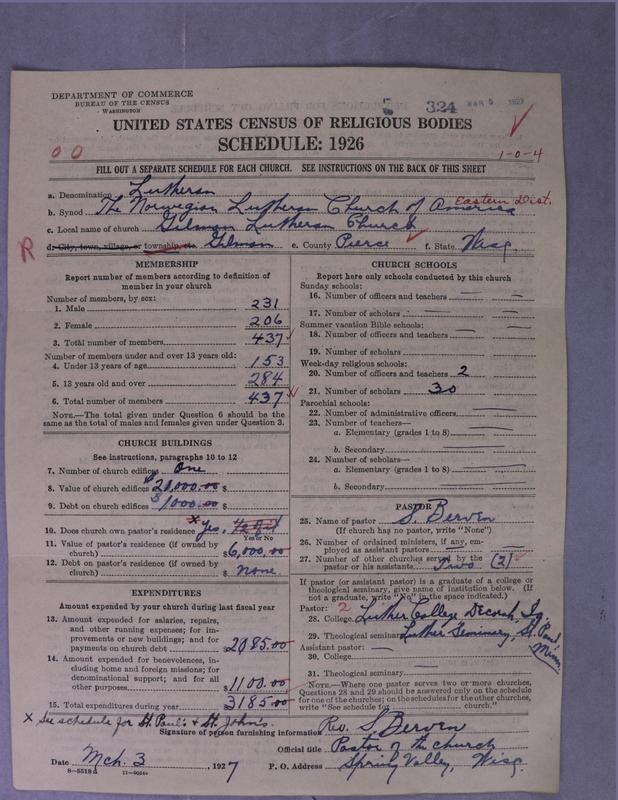 DEPARTMENT OF COMMERCE
BUREAU OF THE CENSUS
WASHINGTON
324 MAR 5 1927
UNITED STATES CENSUS OF RELIGIOUS BODIES
SCHEDULE: 1926
0 0
1-0-4
FILL OUT A SEPARATE SCHEDULE FOR EACH CHURCH. SEE INSTRUCTIONS ON THE BACK OF THIS SHEET
a. Denomination Lutheran
b. Synod The Norwegian Lutheran Church of America Eastern Dist.
c. Local name of church Gilman Lutheran Church
R
d. City, town, village, or township, etc. Gilman e. County Pierce f. State Wisc.
MEMBERSHIP
Report number of members according to definition of
member in your church
Number of members, by sex:
1. Male 231
2. Female 206
3. Total number of members 437
Number of members under and over 13 years old:
4. Under 13 years of age 153
5. 13 years old and over 284
6. Total number of members 437
NOTE.—The total given under Question 6 should be
the same as the total of males and females given under Question 3.
CHURCH BUILDINGS
See instructions, paragraphs 10 to 12
7. Number of church edifices One
8. Value of church edifices $20,000.00 $
9. Debt on church edifices $1000.00 $
10. Does church own pastor's residence x Yes,
Yes or No
11. Value of pastor's residence (if owned by
church) $6,000.00
12. Debt on pastor's residence (if owned by
church) $ None
EXPENDITURES
Amount expended by your church during last fiscal year
13. Amount expended for salaries, repairs,
and other running expenses; for im-
provements or new buildings; and for
payments on church debt $2085.00
14. Amount expended for benevolences, in-
cluding home and foreign missions; for
denominational support; and for all
other purposes $1100.00
15. Total expenditures during year $3185.00
CHURCH SCHOOLS
Report here only schools conducted by this church
Sunday schools:
16. Number of officers and teachers
17. Number of scholars
Summer vacation Bible schools:
18. Number of officers and teachers
19. Number of scholars
Week-day religious schools:
20. Number of officers and teachers 2
21. Number of scholars 30
Parochial schools:
22. Number of administrative officers
23. Number of teachers—
a. Elementary (grades 1 to 8)
b. Secondary
24. Number of scholars—
a. Elementary (grades 1 to 8)
b. Secondary
PASTOR
25. Name of pastor S. Berven
(If church has no pastor, write "None")
26. Number of ordained ministers, if any, em-
ployed as assistant pastors
27. Number of other churches served by the
pastor or his assistants Two (2)
If pastor (or assistant pastor) is a graduate of a college or
theological seminary, give name of institution below. (If
not a graduate, write "No" in the space indicated.)
Pastor: 2
28. College Luther College Decorah, Ia
29. Theological seminary Luther Seminary, St. Paul Minn.
Assistant pastor:
30. College
31. Theological seminary
NOTE.—Where one pastor serves two or more churches,
Questions 28 and 29 should be answered only on the schedule
for one of the churches; on the schedules for the other churches,
write "See schedule for church."
x See schedule for St. Paul's & St. John's.
Signature of person furnishing information Rev. S. Berven
Official title Pastor of the church
Date Mch. 3, 1927 P. O. Address Spring Valley, Wisc.
8—5518a